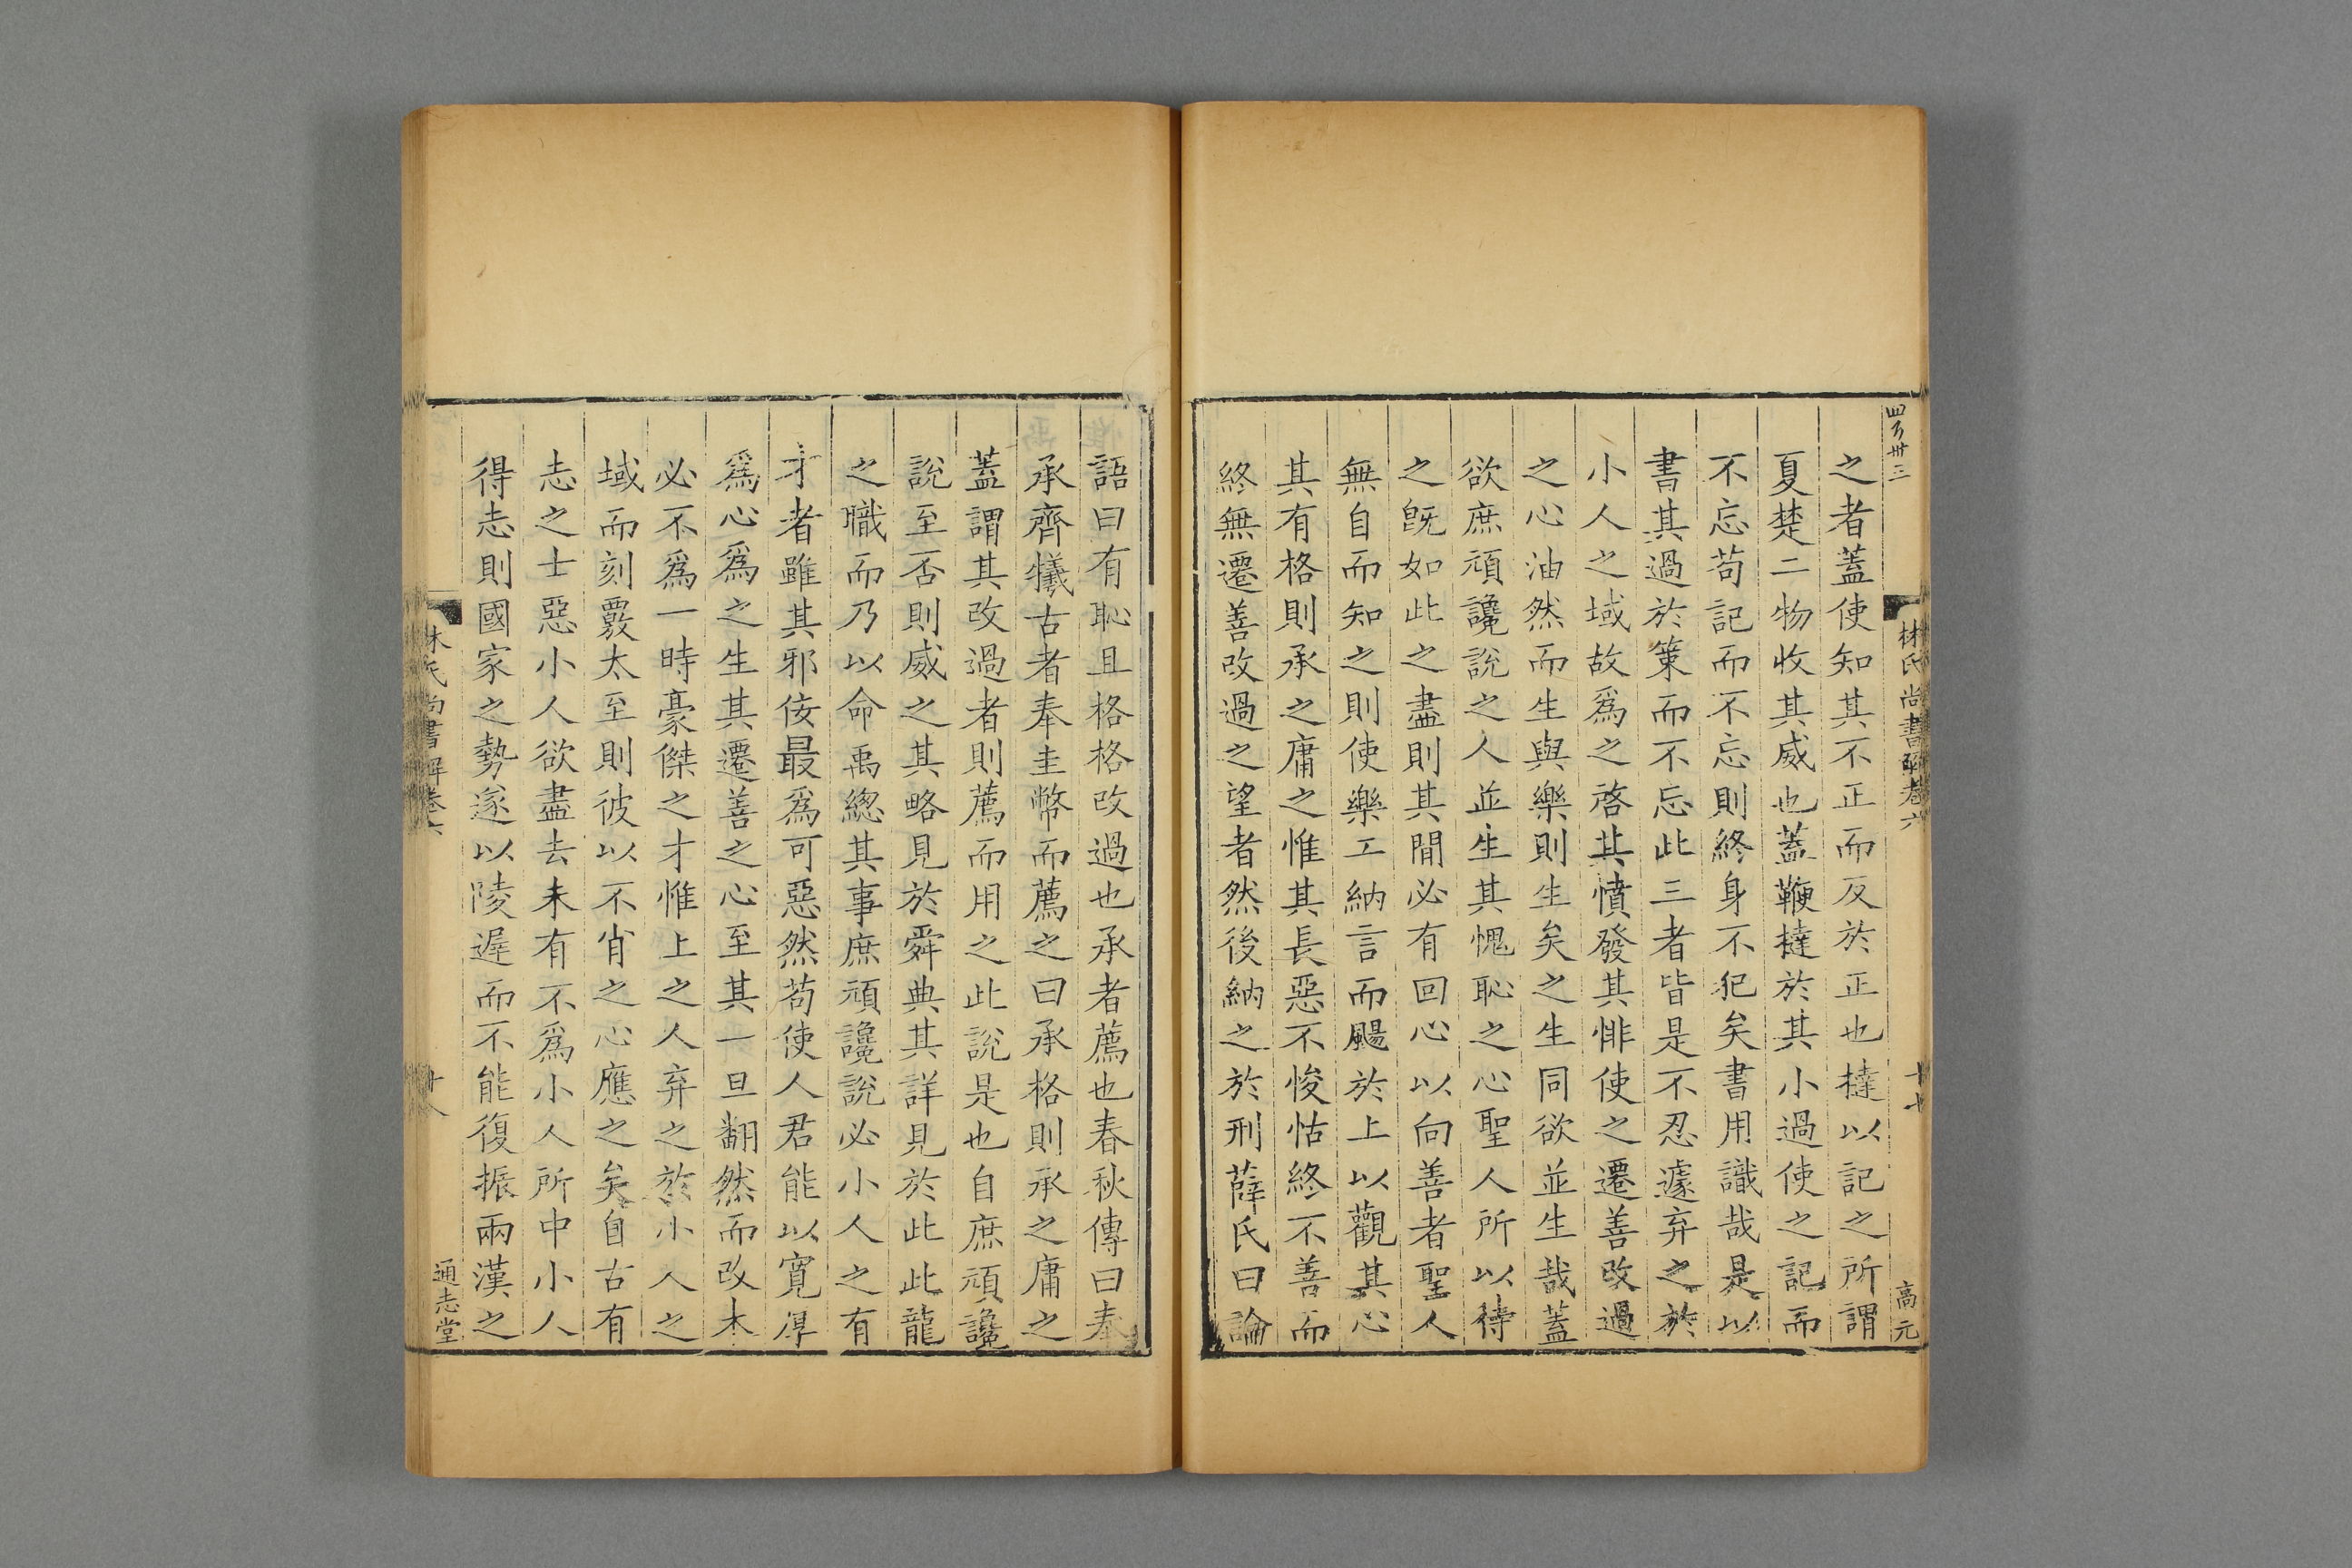 四百卅三
林氏尚書解卷六
十七
高元
之者蓋使知其不正而反於正也撻以記之所謂
夏楚二物收其威也蓋鞭撻於其小過使之記而
不忘苟記而不忘則終身不犯矣書用識哉是以
書其過於策而不忘此三者皆是不忍遽弃之於
小人之域故爲之啓其憤發其悱使之遷善改過
之心油然而生與樂則生矣之生同欲並生哉蓋
欲庶頑讒說之人並生其愧恥之心聖人所以待
之旣如此之盡則其間必有回心以向善者聖人
無自而知之則使樂工納言而颺於上以觀其心
其有格則承之庸之惟其長惡不悛怙終不善而
終無遷善改過之望者然後納之於刑薛氏曰論
語曰有恥且格格改過也承者薦也春秋傳曰奉
承齊犧古者奉圭幣而薦之曰承格則承之庸之
蓋謂其改過者則薦而用之此說是也自庶頑讒
說至否則威之其略見於舜典其詳見於此此龍
之職而乃以命禹緫其事庶頑讒說必小人之有
才者雖其邪佞最爲可惡然苟使人君能以寬厚
爲心爲之生其遷善之心至其一旦翻然而改未
必不爲一時豪傑之才惟上之人弃之於小人之
域而刻覈太至則彼以不肖之心應之矣自古有
志之士惡小人欲盡去未有不爲小人所中小人
得志則國家之勢遂以陵遲而不能復振兩漢之
林氏尚書解卷六
十八
通志堂